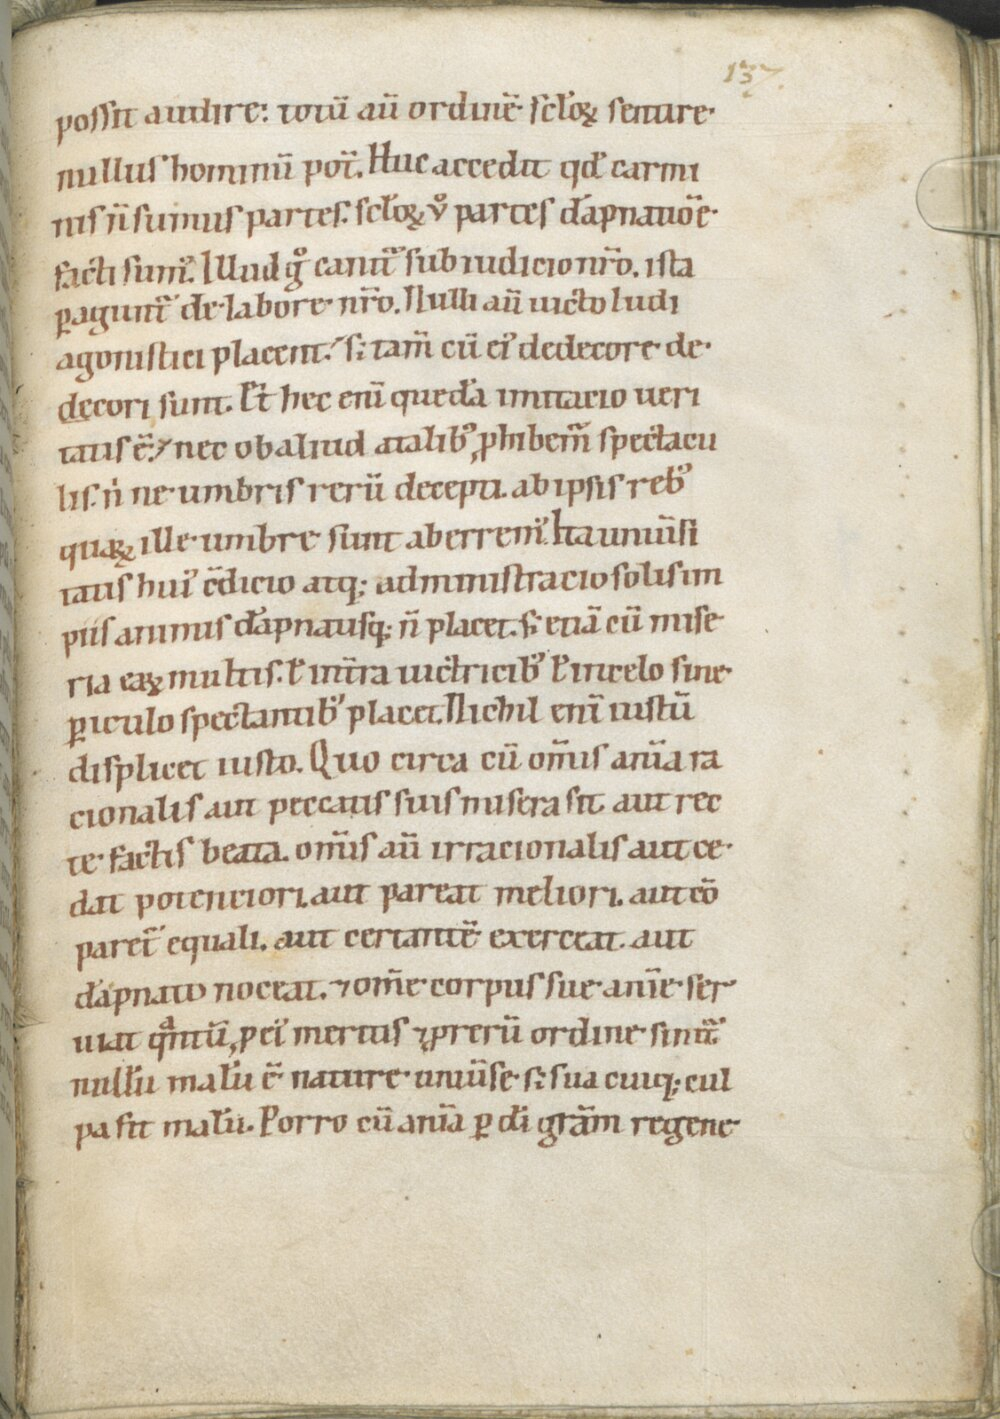 137
possit audire: totū aū ordinē scl̄oꝝ sentire
nullus hominū pot̄. Huc accedit qđ carmi
nis n̄ sumus partes. scl̄oꝝ v̊ partes dāpnatiōe
facti sumꝰ. Illud g̊ canit᷑ sub iudicio nr̄o. ista
ꝑagunt᷑ de labore nr̄o. Nulli aū uicto ludi
agonistici placent. s; tam̄ cū eiꝰ dedecore de
decori sunt. Et hec enī quedā imitacio ueri
tatis ē. nec ob aliud a talibꝰ ꝓhibem᷑ spectacu
lis. n̄ ne umbris rerū decepti. ab ipsis rebꝰ
quaꝝ ille umbre sunt aberremꝰ. Ita uniūsi
tatis huiꝰ ɔ̄dicio atq; administracio solis im
piis animis dāpnatisq; n̄ placet. s; etiā cū mise
ria eaꝝ multis. ł in tr̄a uictricibꝰ ł in celo sine
ꝑiculo spectantibꝰ placet. Nichil enī iustū
displicet iusto. Quo circa cū om̄is anīa ra
cionalis aut peccatis suis misera sit aut rec
te factis beata. om̄is aū irracionalis aut ce
dat potenciori. aut pareat meliori. aut cō
paret᷑ equali. aut certantē exerceat. aut
dāpnato noceat. ⁊ om̄e corpus sue anīe ser
uiat qͣntū ꝓ eiꝰ meritis ⁊ ꝓ rerū ordine sinit᷑.
nullū malū ē nature uniūse s; sua cuiq; cul
pa fit malū. Porro cū anīa ꝑ dī gr̄am regene